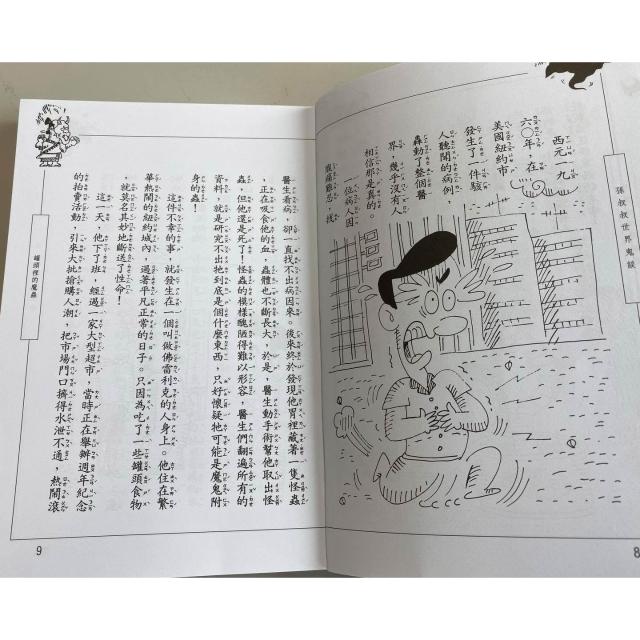 孫叔叔世界鬼談
西元一九
六〇年，在
美國紐約市
發生了一件駭
人聽聞的病例，
轟動了整個醫
界，幾乎沒有人
相信那是真的。
一位病人因
腹痛難忍，找
8
醫生看病，卻一直找不出病因來。後來終於發現他胃裡藏著一隻怪蟲
，正在吸食他的血，蟲體也不斷長大，於是，醫生動手術幫他取出怪
蟲，但他還是死了。怪蟲的模樣醜陋得難以形容，醫生們翻遍所有的
資料，就是研究不出牠到底是個什麼東西，只好懷疑牠可能是魔鬼附
身的蟲！
這件不幸的事，就發生在一個叫做佛雷利克的人身上。他住在繁
華熱鬧的紐約城內，過著平凡正常的日子。只因為吃了一些罐頭食物
，就莫名其妙地斷送了性命！
這一天，他下了班，經過一家大型超市，當時正在舉辦週年紀念
的拍賣活動，引來大批搶購人潮，把市場門口擠得水泄不通，熱鬧滾
罐頭裡的魔蟲
9